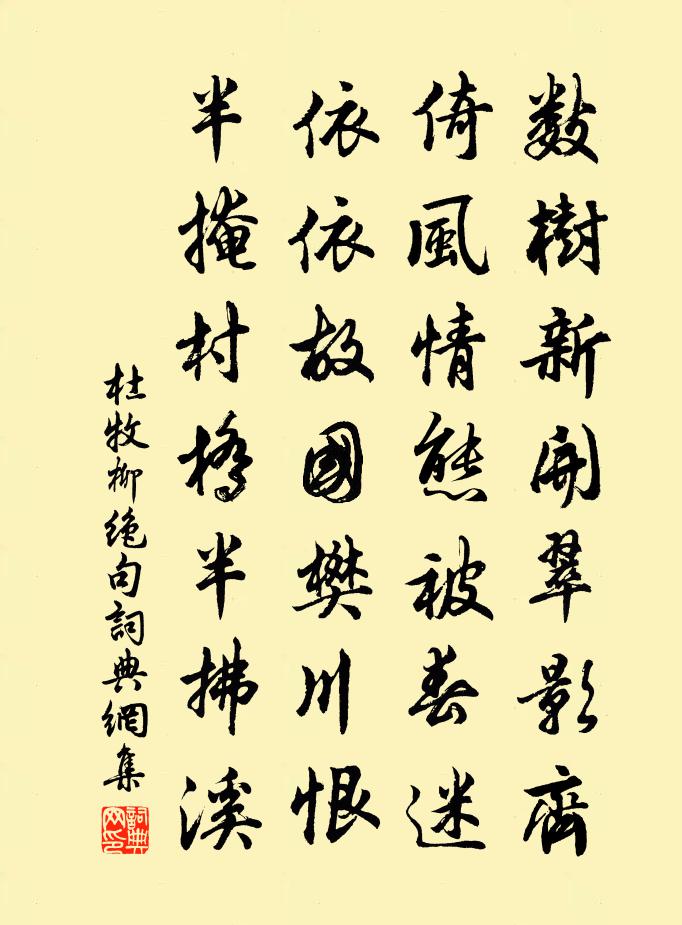 數樹新開翠影齊
倚風情態被春迷
依依故國樊川恨
半掩村橋半拂溪
杜牧柳絕句詞典網集
詞典网印